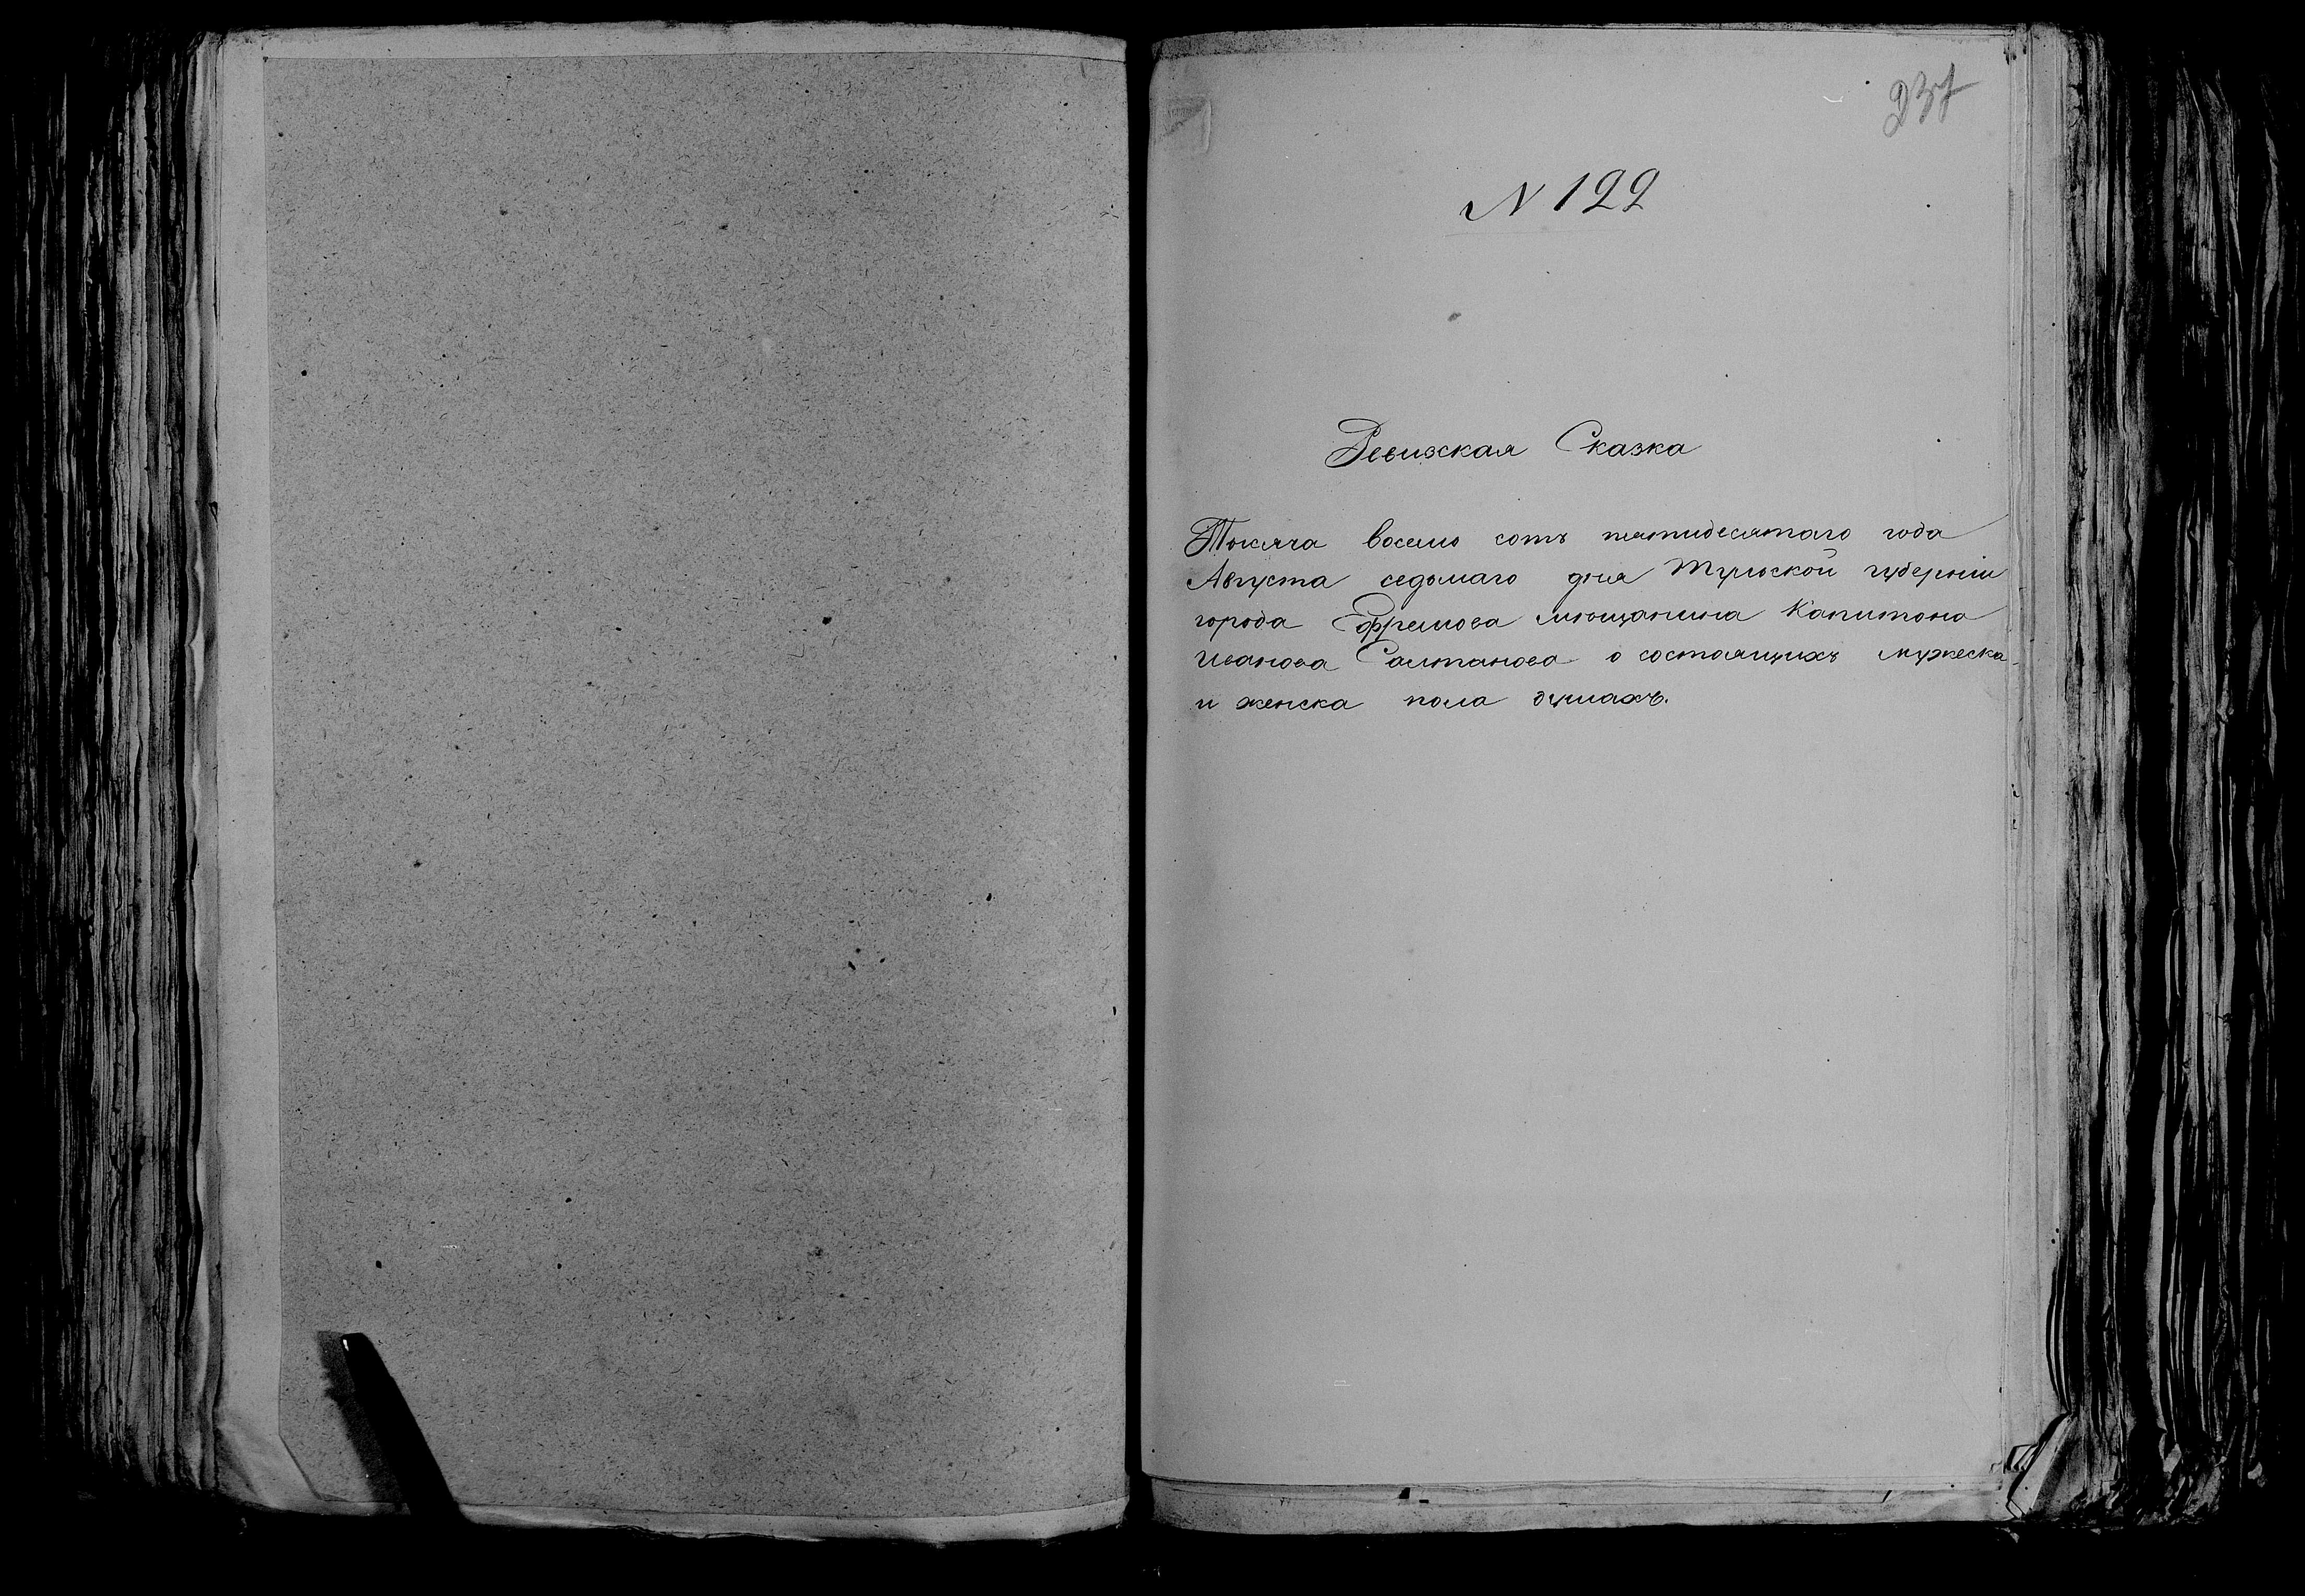 237
N 122
Ревижская Сказка
Тысяча восемь сотъ пятидесятаго года
Августа седьмаго дня Тульской губерніи
города Ефремова мещанина Капитона
Иванова Салтанова о состоящихъ мужеска
и женска пола душахъ.